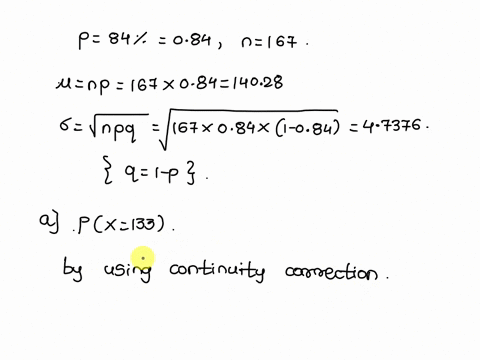 p = 84% = 0.84, n = 167.
μ = np = 167 × 0.84 = 140.28
σ = √npq = √167 × 0.84 × (1-0.84) = 4.7376.
{ q = 1-p }.
a] P(x = 133).
by using continuity correction.